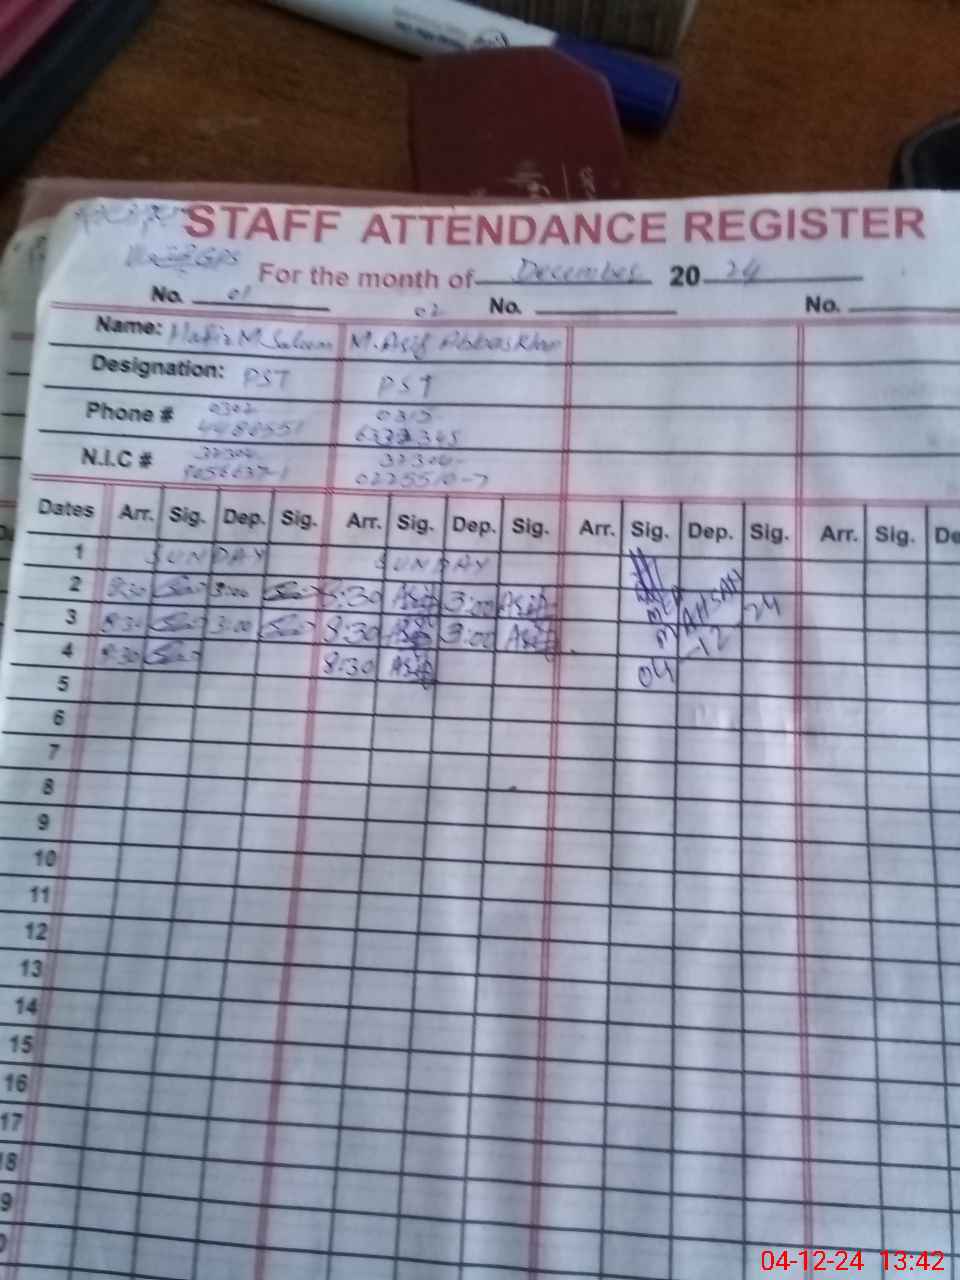 STAFF ATTENDANCE REGISTER
GPS
For the month of December 20 24
No. 01 02 No. No.
Name: Hafiz M Saleem M. Asif Abbas Khan
Designation: PST PST
Phone # 0302 0315
6322345
N.I.C # 32304 32304-
0225510-7
Dates Arr. Sig. Dep. Sig. Arr. Sig. Dep. Sig. Arr. Sig. Dep. Sig. Arr. Sig. De
1 SUNDAY SUNDAY
2 8:30 3:00 8:30 Asif 3:00 Asif
3 8:30 3:00 8:30 Asif 3:00 Asif
4 8:30 8:30 Asif
AHSAN
04 -12 24
5
6
7
8
9
10
11
12
13
14
15
16
17
18
9
04-12-24 13:42